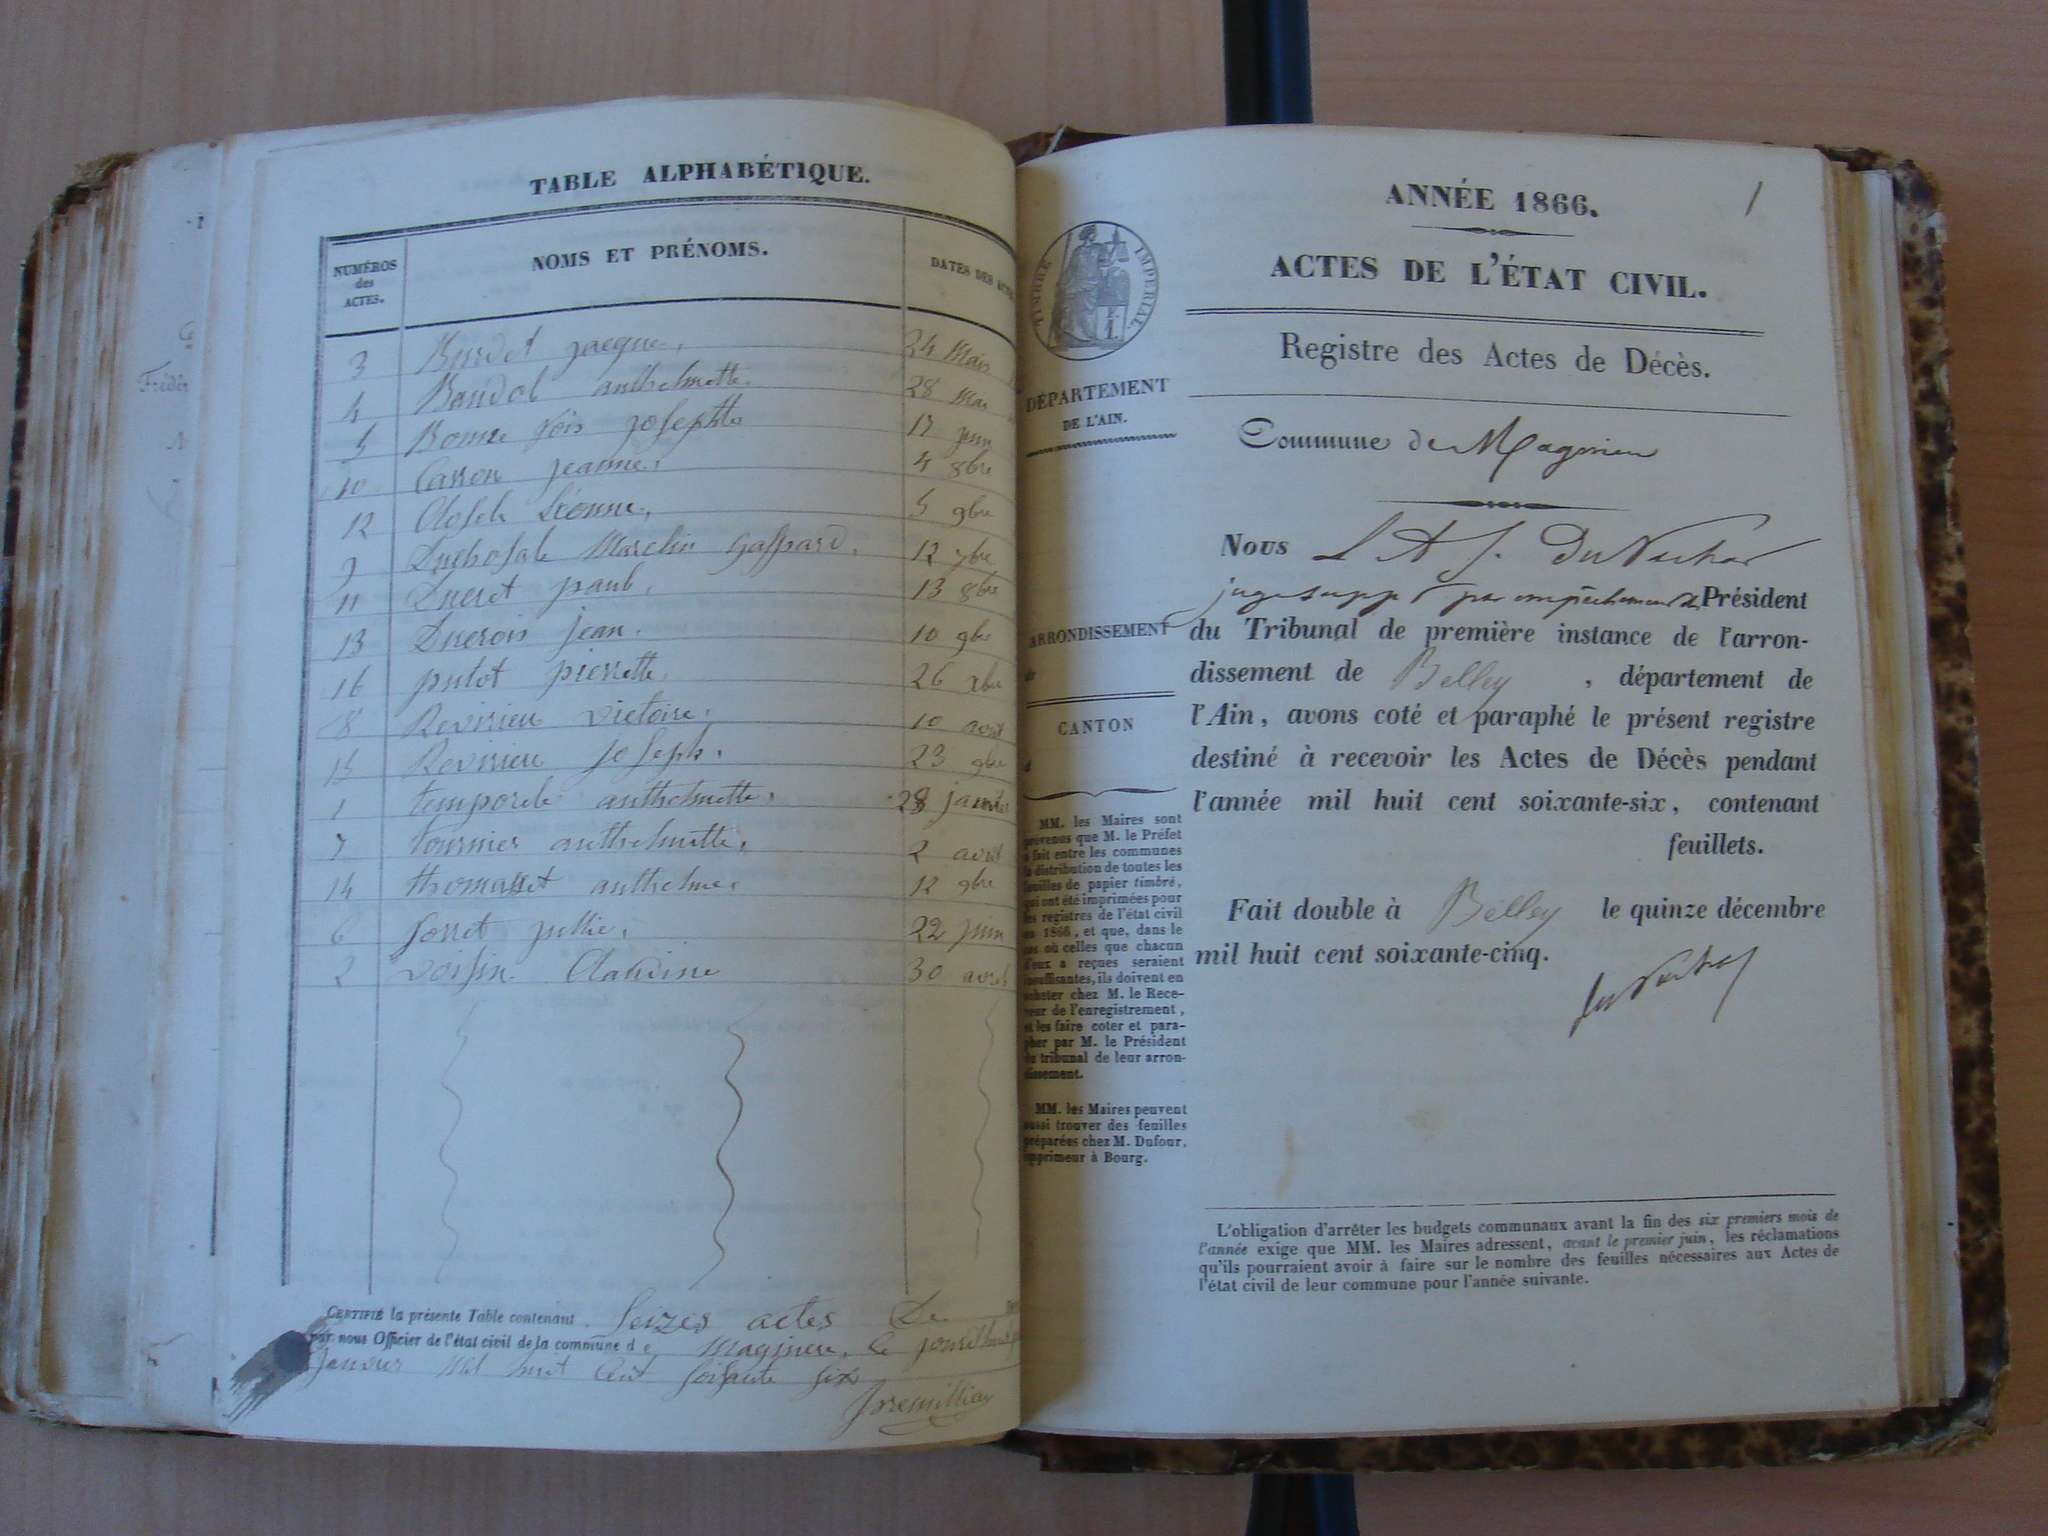 TABLE ALPHABÉTIQUE.
NUMÉROS des ACTES. NOMS ET PRÉNOMS. DATES DES
3 Burdet jacque. 24 Mars
4 Baudot anthelmette. 28 Mai
5 Bonne fois josephte 17 juin
10 Carron jeanne. 4 8bre
12 5 9bre
9 Marclin gaspard. 12 7bre
11 Ducret paul. 13 8bre
13 Ducrois jean. 10 9bre
16 putot pierrette. 26 xbre
8 Revirieu victoire. 10 août
15 Revirieu joseph. 23 9bre
1 anthelmette. 28 janvier
7 tournier anthelmette. 2 août
14 thomasset anthelme. 12 9bre
6 22 juin
2 voisin Claudine 30 avril
CERTIFIÉ la présente Table contenant Seizes actes De
par nous Officier de l'état civil de la commune de Magnieu, le
Janvier mil huit Cent soisante six
ANNÉE 1866.
1
ACTES DE L'ÉTAT CIVIL.
Registre des Actes de Décès.
TIMBRE IMPÉRIAL.
DÉPARTEMENT
DE L'AIN.
Commune de Magnieu
Nous L A J.
juge supp par empêchement du Président
du Tribunal de première instance de l'arron-
dissement de Belley, département de
l'Ain, avons coté et paraphé le présent registre
destiné à recevoir les Actes de Décès pendant
l'année mil huit cent soixante-six, contenant
feuillets.
Fait double à Belley le quinze décembre
mil huit cent soixante-cinq.
ARRONDISSEMENT
CANTON
MM. les Maires sont
prévenus que M. le Préfet
a fait entre les communes
la distribution de toutes les
feuilles de papier timbré,
qui ont été imprimées pour
les registres de l'état civil
en 1866, et que, dans le
cas où celles que chacun
d'eux a reçues seraient
insuffisantes, ils doivent en
acheter chez M. le Rece-
veur de l'enregistrement,
et les faire coter et para-
pher par M. le Président
du tribunal de leur arron-
dissement.
MM. les Maires peuvent
aussi trouver des feuilles
préparées chez M. Dufour,
imprimeur à Bourg.
L'obligation d'arrêter les budgets communaux avant la fin des six premiers mois de
l'année exige que MM. les Maires adressent, avant le premier juin, les réclamations
qu'ils pourraient avoir à faire sur le nombre des feuilles nécessaires aux Actes de
l'état civil de leur commune pour l'année suivante.